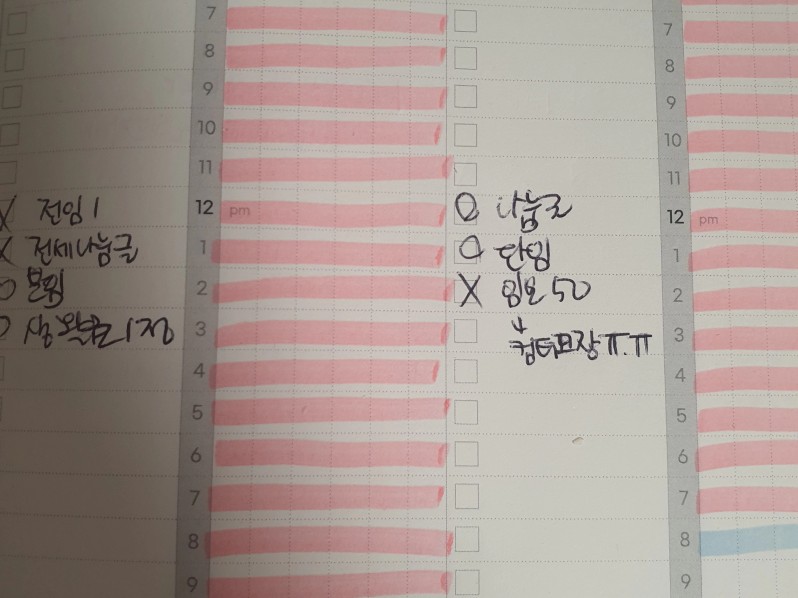 7
8
9
10
11
12 pm
1
2
3
4
5
6
7
8
9
X 전임 1
X 전세나눔글
O 모임
O
O 나눔글
O 단임
X 임보 50
↓
컴터고장 ㅠ.ㅠ
7
8
9
10
11
12 pm
1
2
3
4
5
6
7
8
9